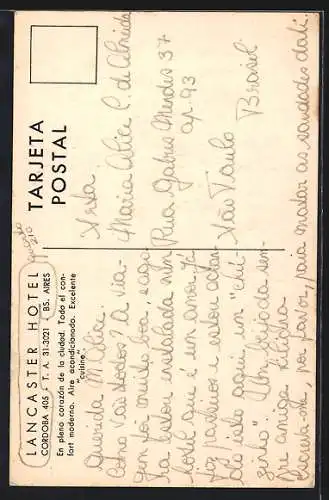 TARJETA
POSTAL
LANCASTER HOTEL
CORDOBA 405 - T. A. 31-3021 - BS. AIRES
En pleno corazón de la ciudad. Todo el con-
fort moderno. Aire acondicionado. Excelente
"cuisine."
210
Maria Alice C. de Almeida
Rua Gabus Mendes 37
ap. 93
São Paulo Brasil
Querida M. Alice.
Como vão todos? A via-
gem foi muito boa, e ago-
ra estou instalada num
hotel que é um amor. Já
fiz passeios e estou adoran-
do tudo. Um "chi-
Um beijo da sem-
pre amiga
Escreva-me, por favor, para matar as saudades daí.